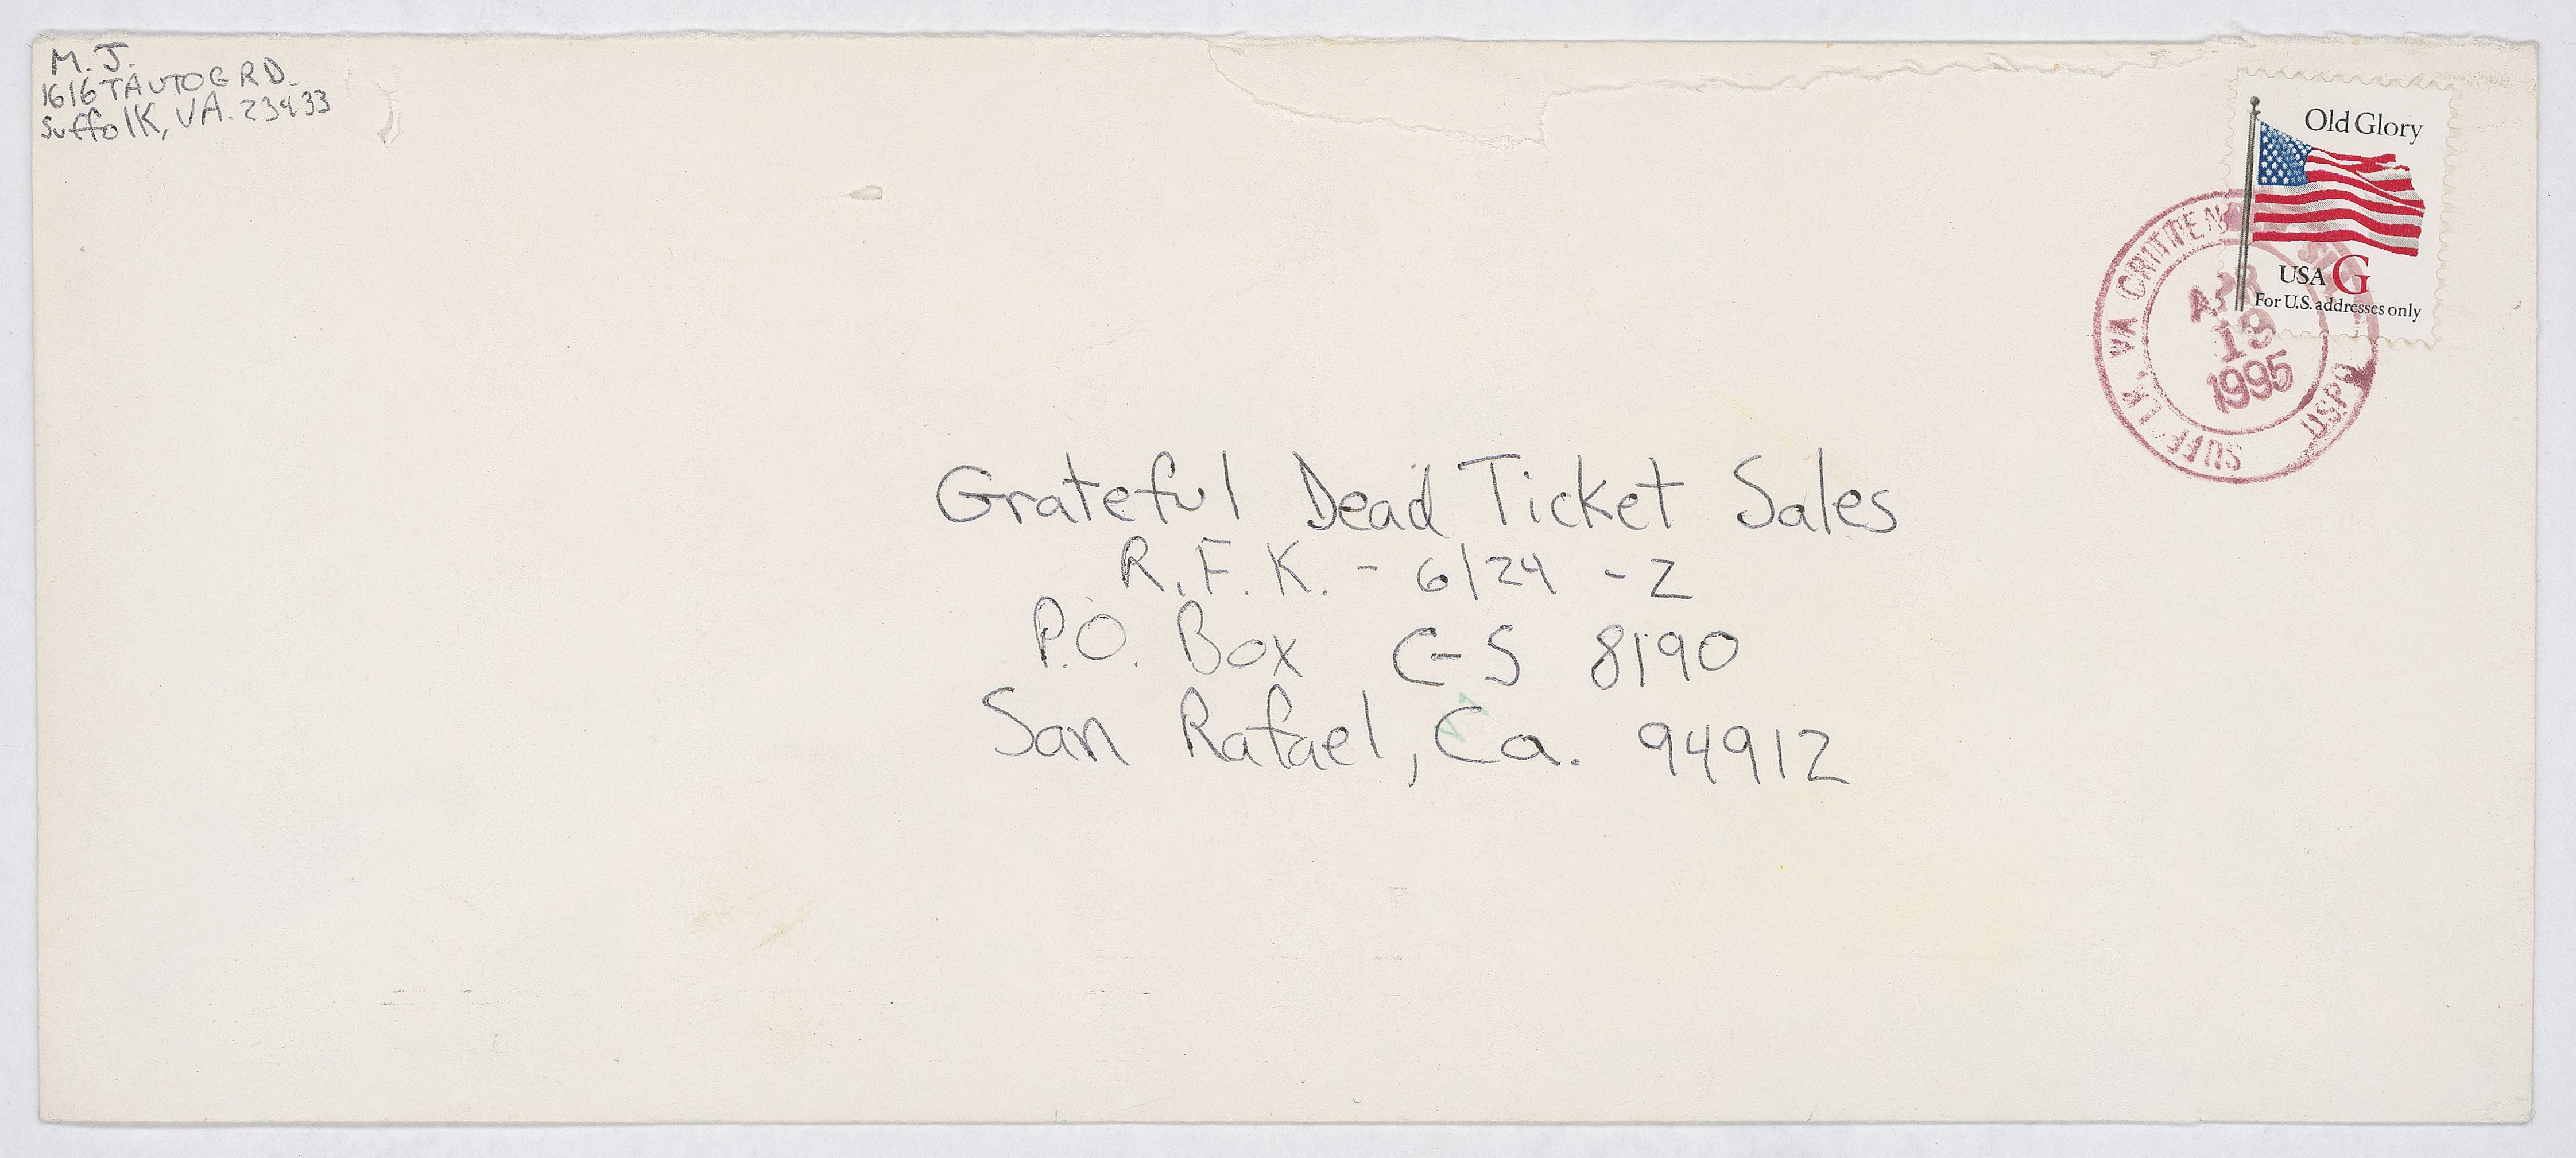 M. J.
1616 TAUTOG RD.
Suffolk, VA. 23433
Old Glory
USA G
For U.S. addresses only
SUFFOLK, VA CRITTENDEN
USPO
APR
1995
Grateful Dead Ticket Sales
R.F.K. - 6/24 - 2
P.O. Box C-S 8190
San Rafael, Ca. 94912